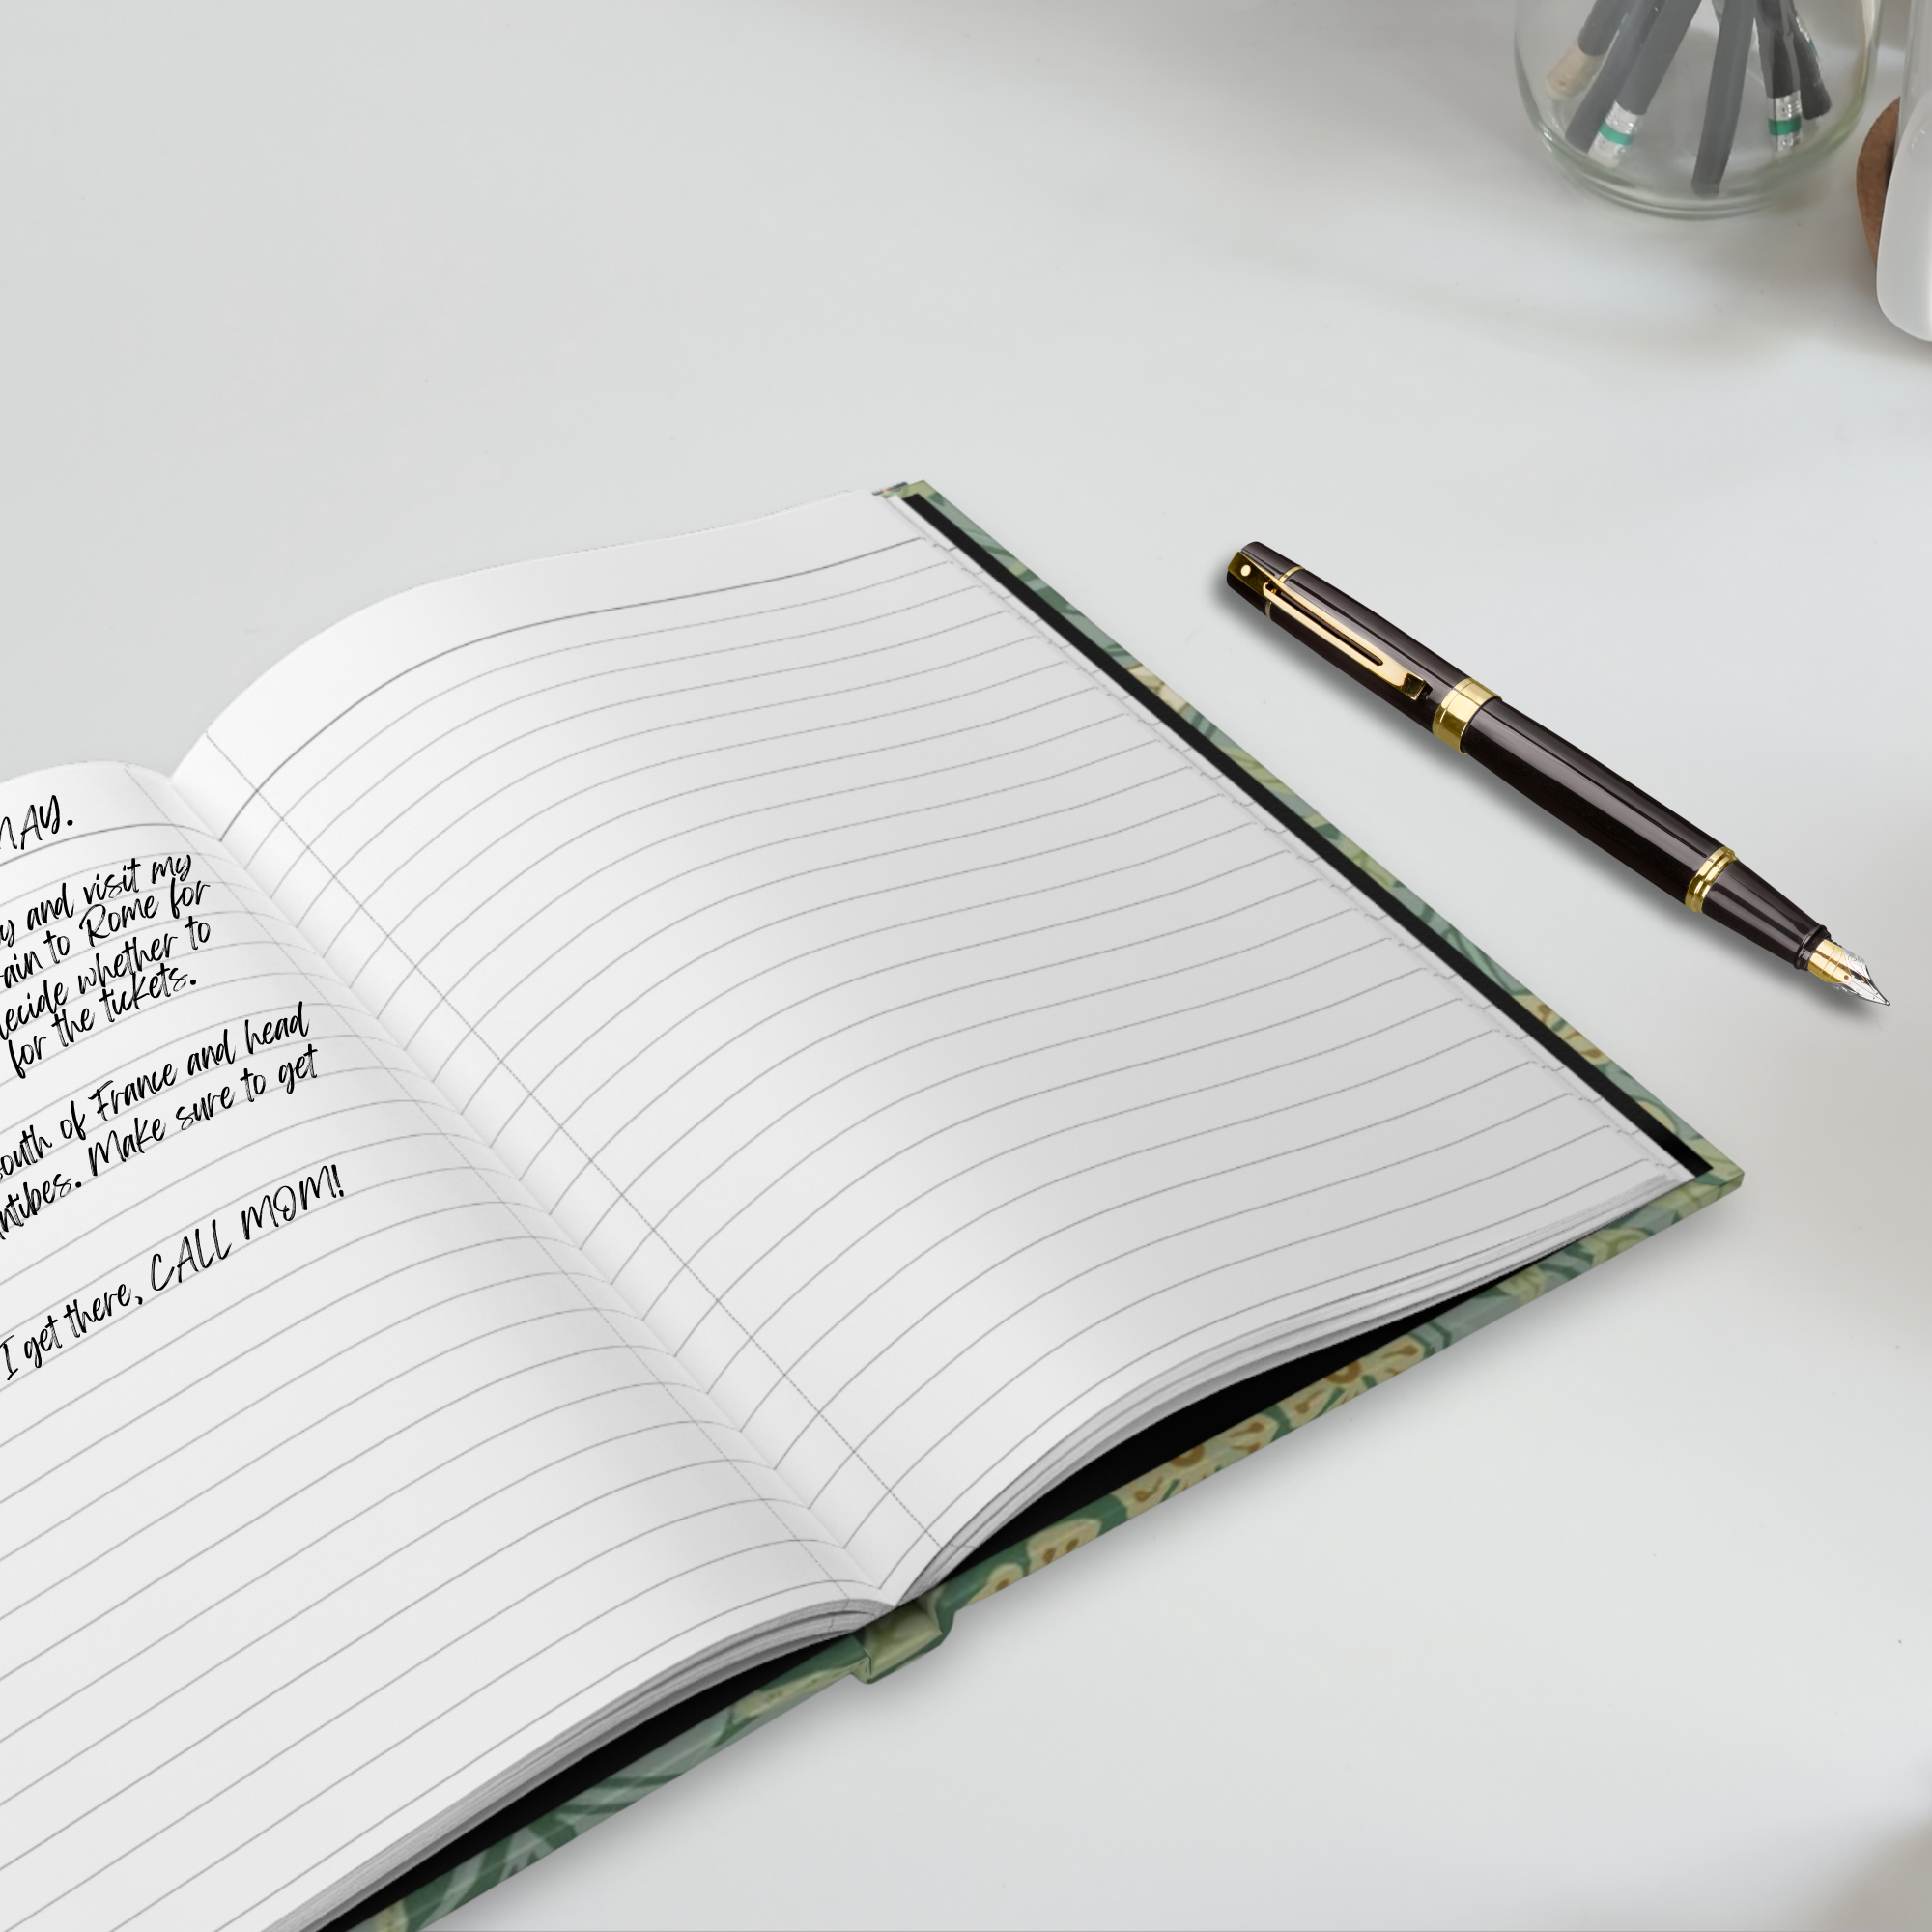 MAY.
and visit my
to Rome for
whether to
for the tickets.
of France and head
Make sure to get
I get there, CALL MOM!